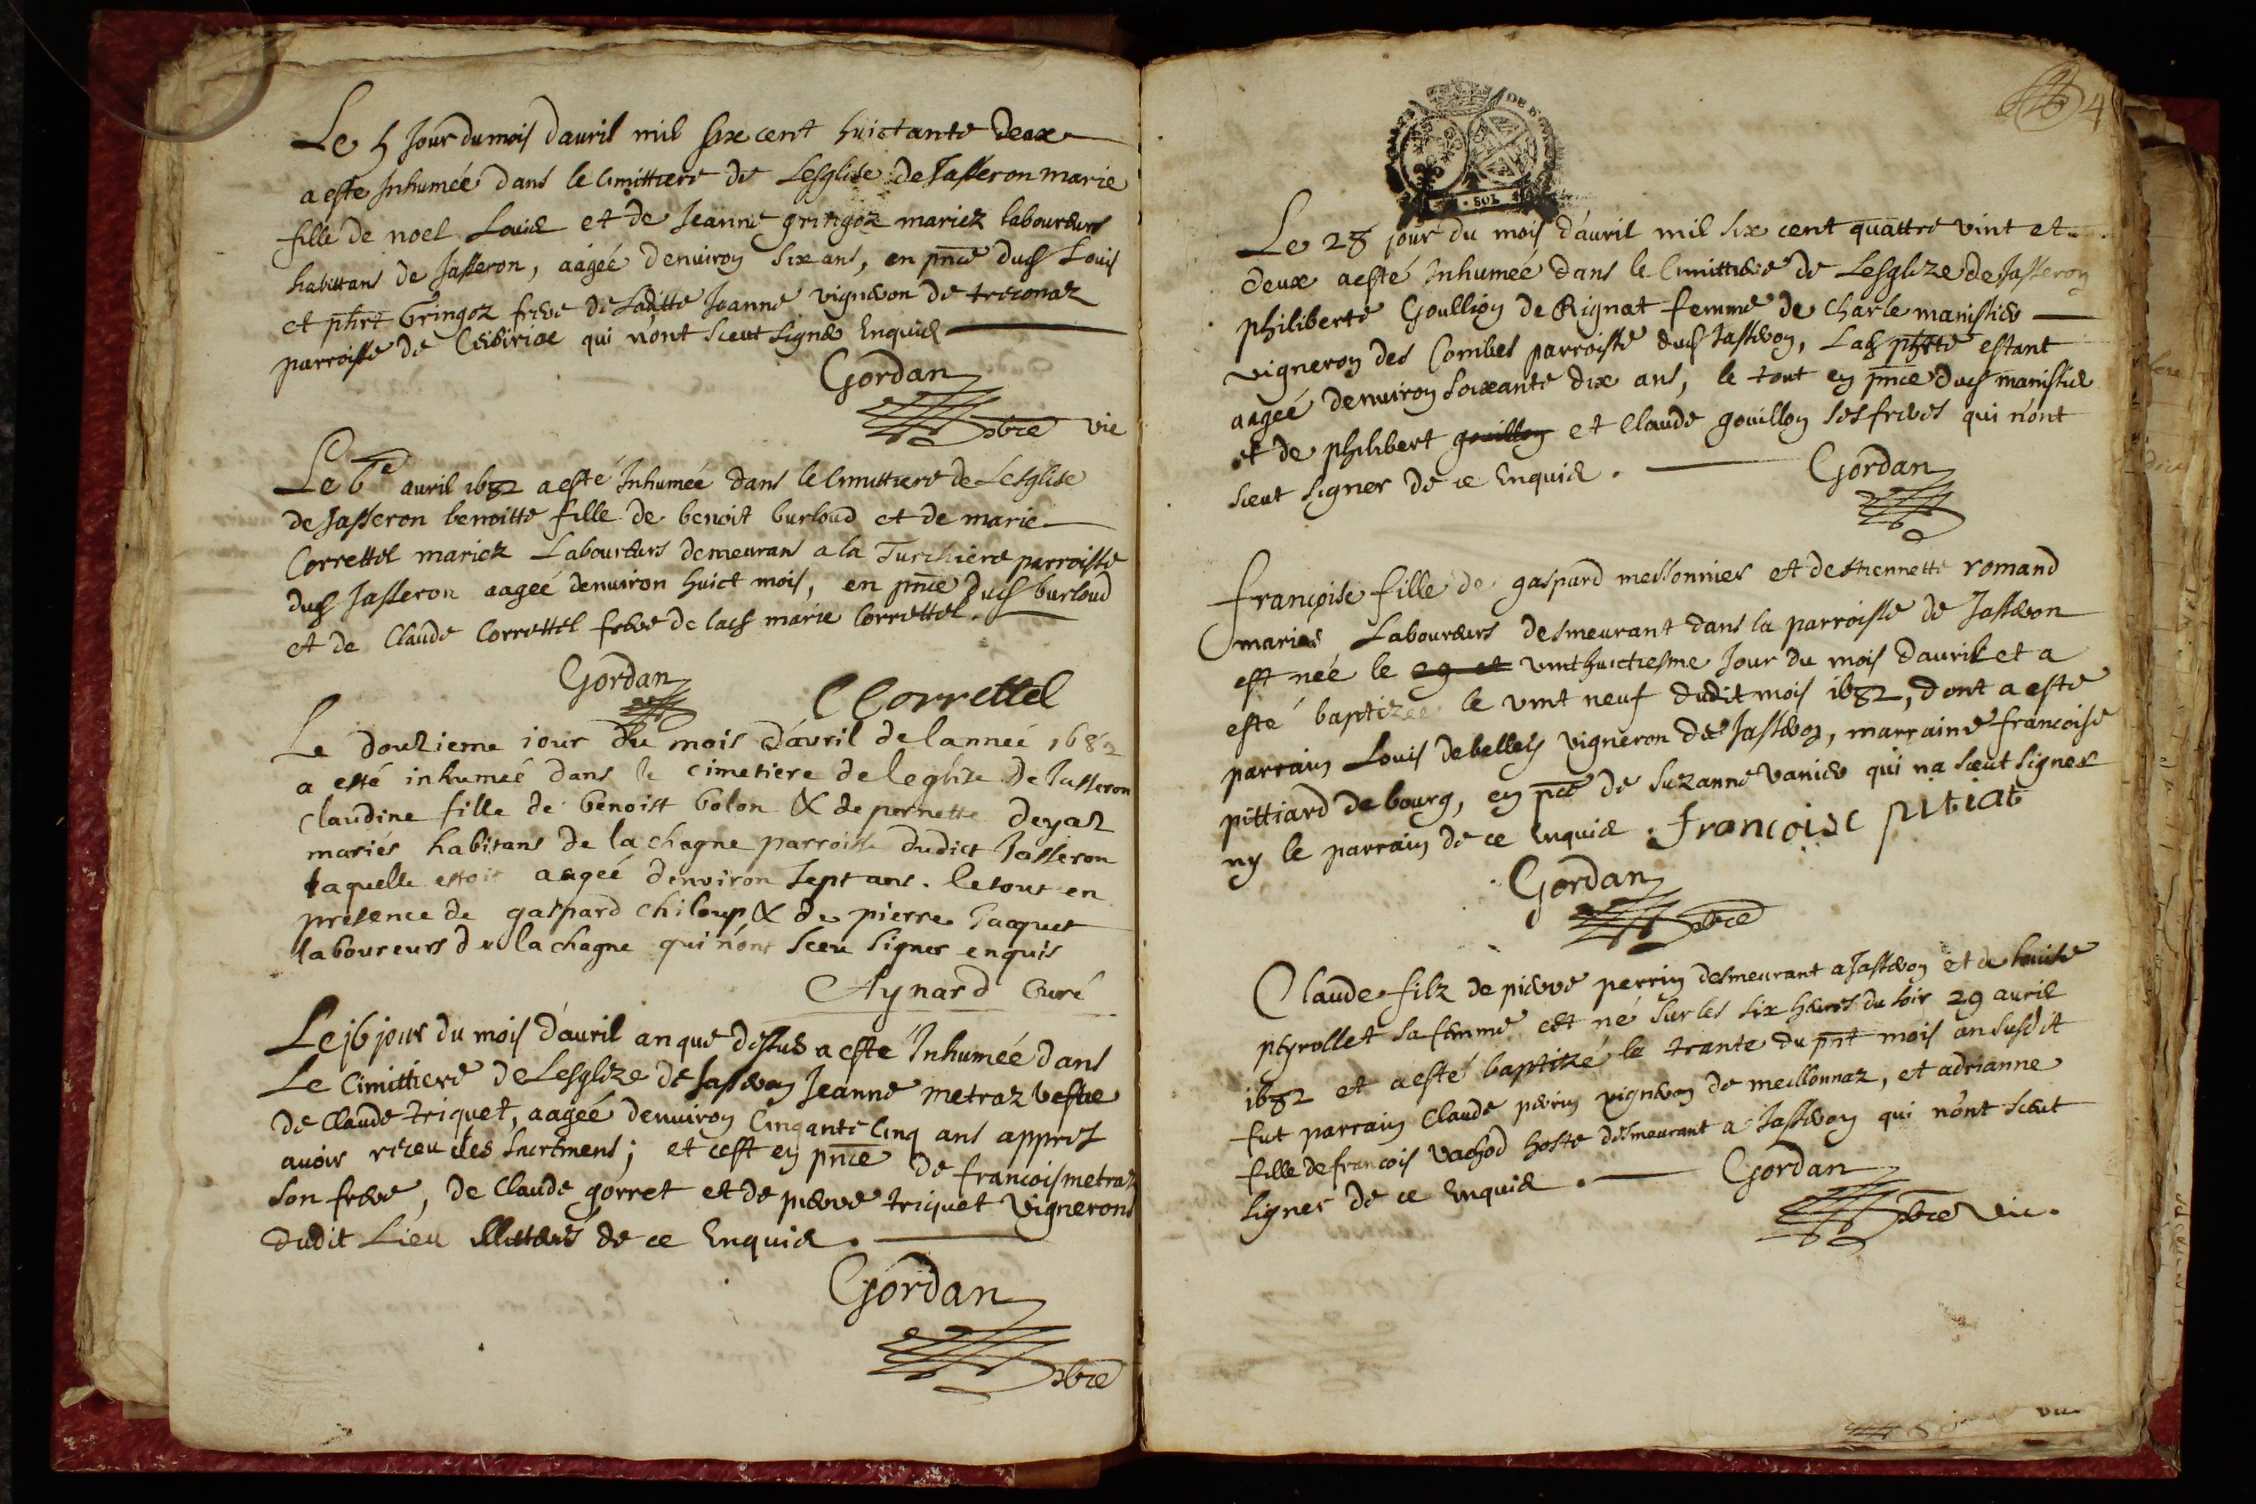 Le 5 Jour du mois dauril mil six cent huictante deux
a este Inhumée dans le Cimittiere de Lesglise de Jasseron marie
fille de noel Louis et de Jeanne gringoz mariez laboureurs
habittans de Jasseron, aagée denuiron six ans, en pnce dud Louis
et phrt Gringoz frere de Laditte Jeanne vigneron de treconaz
parroisse de Ceseriac qui nont sceut signer Enquis
Gordan
pbre vic
Le 6e auril 1682 a esté Inhumée dans le Cimittiere de Lesglise
de Jasseron benoitte fille de benoit burloud et de marie
Correttel mariez Laboureurs demeurans a la Turchiere parroisse
dud Jasseron aagée denuiron huict mois, en pnce dud burloud
et de Claude Correttel frere de lad marie Correttel.
Gordan CCorrettel
Le douzieme iour du mois d'avril de l année 1682
a esté inhumeé dans le cimetiere de leglise de Jasseron
Claudine fille de benoist bolon & de pernette deyaz
mariés habitans de la chagne parroisse dudict Jasseron
laquelle estoit aagée denviron sept ans. le tout en
presence de gaspard chiloup & de pierre Jacquet
laboureurs de la chagne qui n'ont sceu signer enquis
Aynard Curé
Le 16 jour du mois d'auril an que dessus a esté Inhumée dans
Le Cimittiere de Lesglize de Jasseron Jeanne metraz vefue
de Claude triquet, aagée denuiron Cinqante Cinq ans appres
auoir receu les sacremens; et cest en pnce de francois metraz
son frere, de Claude gorret et de pierre triquet vignerons
dudit Lieu illitterés de ce Enquis.
Gordan
pbre
4
Le 28 jour du mois d'auril mil six cent quattre vint et
deux a esté Inhumée dans le Cimittiere de Lesglize de Jasseron
philiberte Goullion de Rignat femme de Charle manissier
vigneron des Combes parroisse dud Jasseron, Lad phrte estant
aagée denuiron soixante dix ans, le tout en pnce dud manissier
et de philibert gouillon et Claude gouillon ses freres qui n'ont
sceut signer de ce Enquis.
Gordan
françoise fille de gaspard messonnier et destiennette romand
maries Laboureurs desmeurant dans la parroisse de Jasseron
est née le 29 et vinthuictiesme Jour du mois dauril et a
esté baptizee le vint neuf dudit mois 1682, dont a este
parrain Louis debelley vigneron de Jasseron, marraine francoise
pittiard de bourg, en pce de suzanne vanier qui na sceut signer
ny le parrain de ce Enquis. francoise putiat
Gordan
pbre
Claude filz de pierre perrin desmeurant a Jasseron et de louise
peyrollet sa femme est né sur les six heures du soir 29 auril
1682 et a esté baptizé le trante du pnt mois an susdit
fut parrain Claude perrin vigneron de meillonnaz, et adrianne
fille de francois vachod hoste desmeurant a Jasseron qui n'ont sceut
signer de ce Enquis.
Gordan
pbre vic.